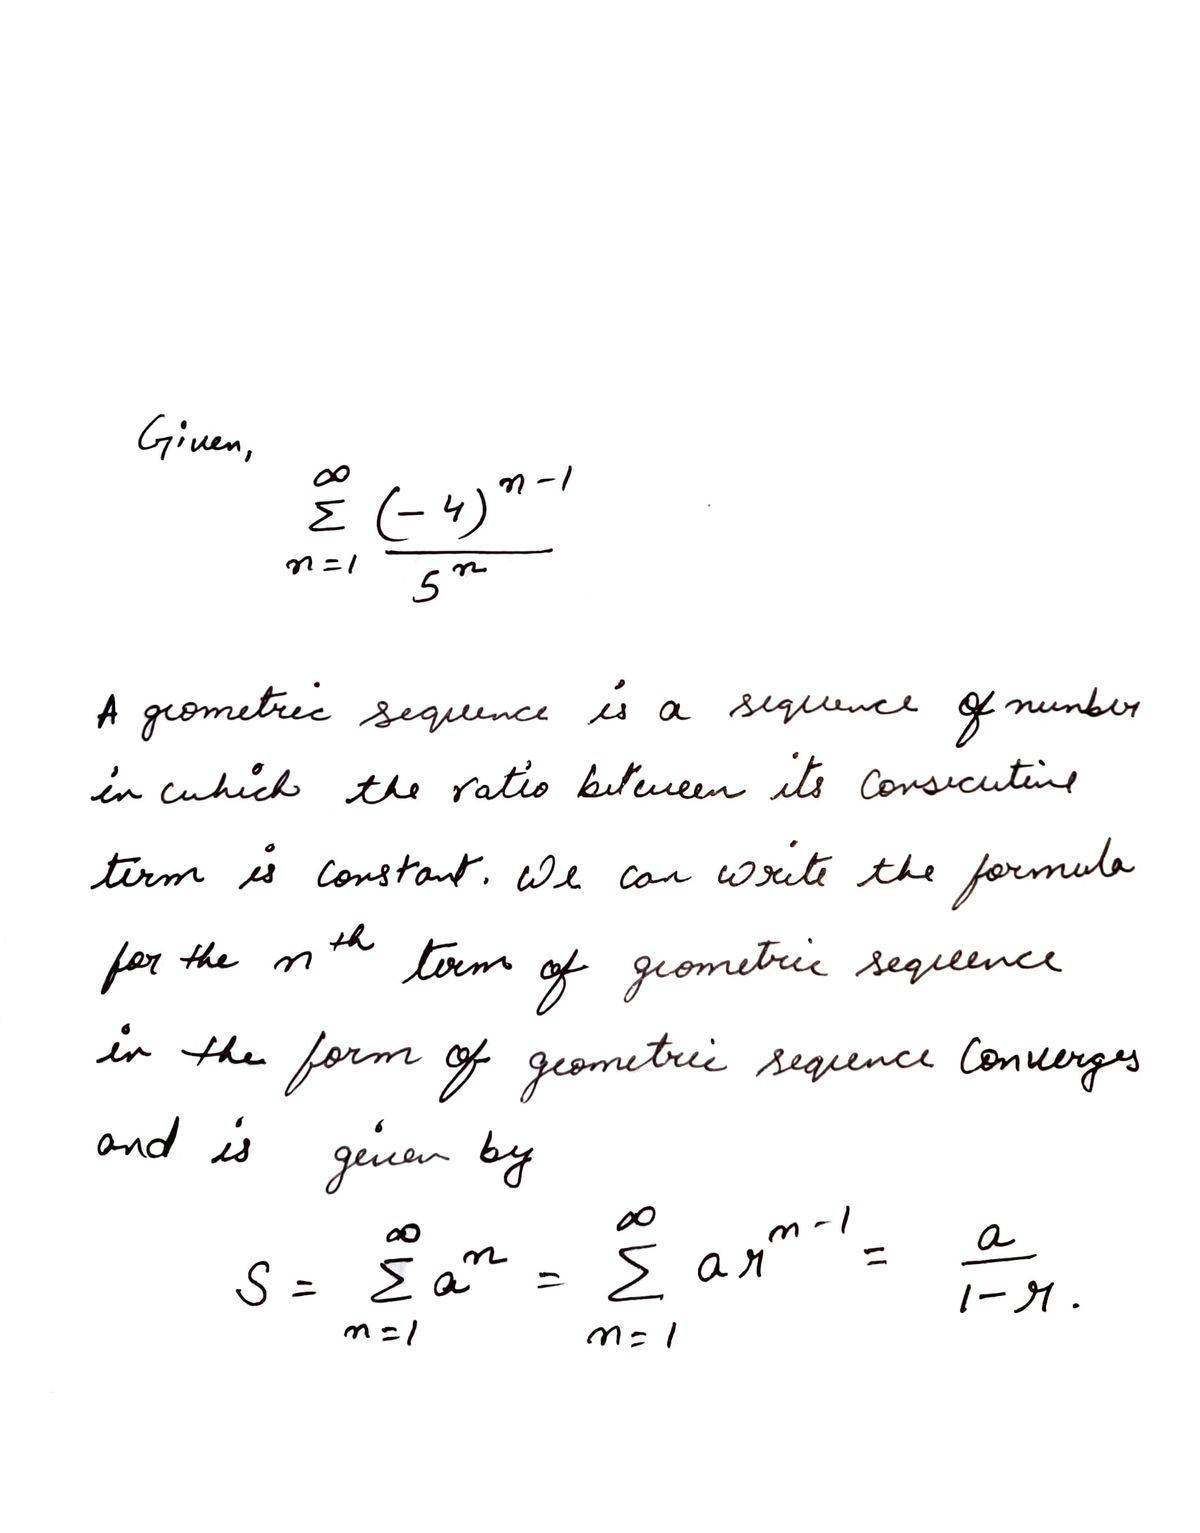 Given,
∞
Σ (-4)^{n-1}
n=1 5^n
A geometric sequence is a sequence of number
in which the ratio between its consecutive
term is constant. We can write the formula
for the nth term of geometric sequence
in the form of geometric sequence converges
and is given by
S = Σ_{n=1}^{∞} a^n = Σ_{n=1}^{∞} ar^{n-1} = a/(1-r).